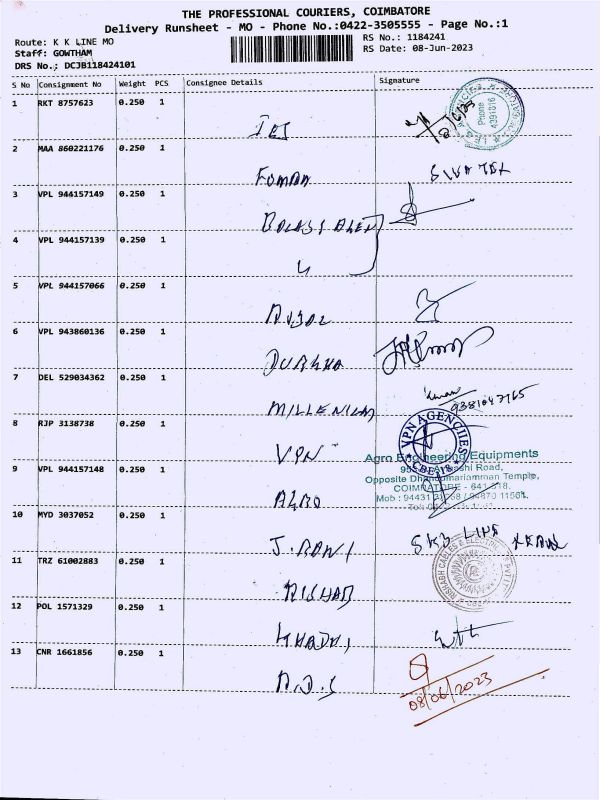 THE PROFESSIONAL COURIERS, COIMBATORE
Delivery Runsheet - MO - Phone No.:0422-3505555 - Page No.:1
Route: K K LINE MO
Staff: GOWTHAM
DRS No.: DCJB118424101
RS No.: 1184241
RS Date: 08-Jun-2023
S No Consignment No Weight PCS Consignee Details Signature
1 RKT 8757623 0.250 1
Phone 4391816
2 MAA 860221176 0.250 1
3 VPL 944157149 0.250 1
4 VPL 944157139 0.250 1
5 VPL 944157066 0.250 1
6 VPL 943860136 0.250 1
DURGHA
7 DEL 529034362 0.250 1
MILLENIUM
8 RJP 3138738 0.250 1
VPN
VPN AGENCIES
9 VPL 944157148 0.250 1
AGRO
Agro Engineering Equipments
Road,
Opposite Dhandumariamman Temple,
COIMBATORE - 641 018.
10 MYD 3037052 0.250 1
J. RANI
11 TRZ 61002883 0.250 1
RISHAB
12 POL 1571329 0.250 1
13 CNR 1661856 0.250 1
08/06/2023